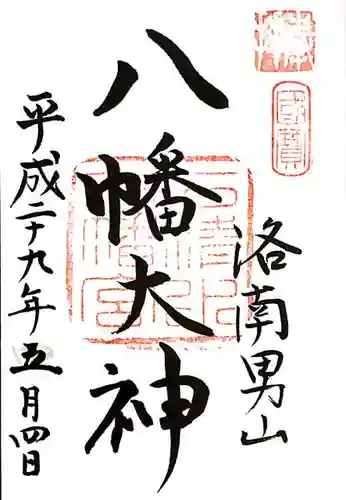 洛南男山
八幡大神
平成二十九年五月四日